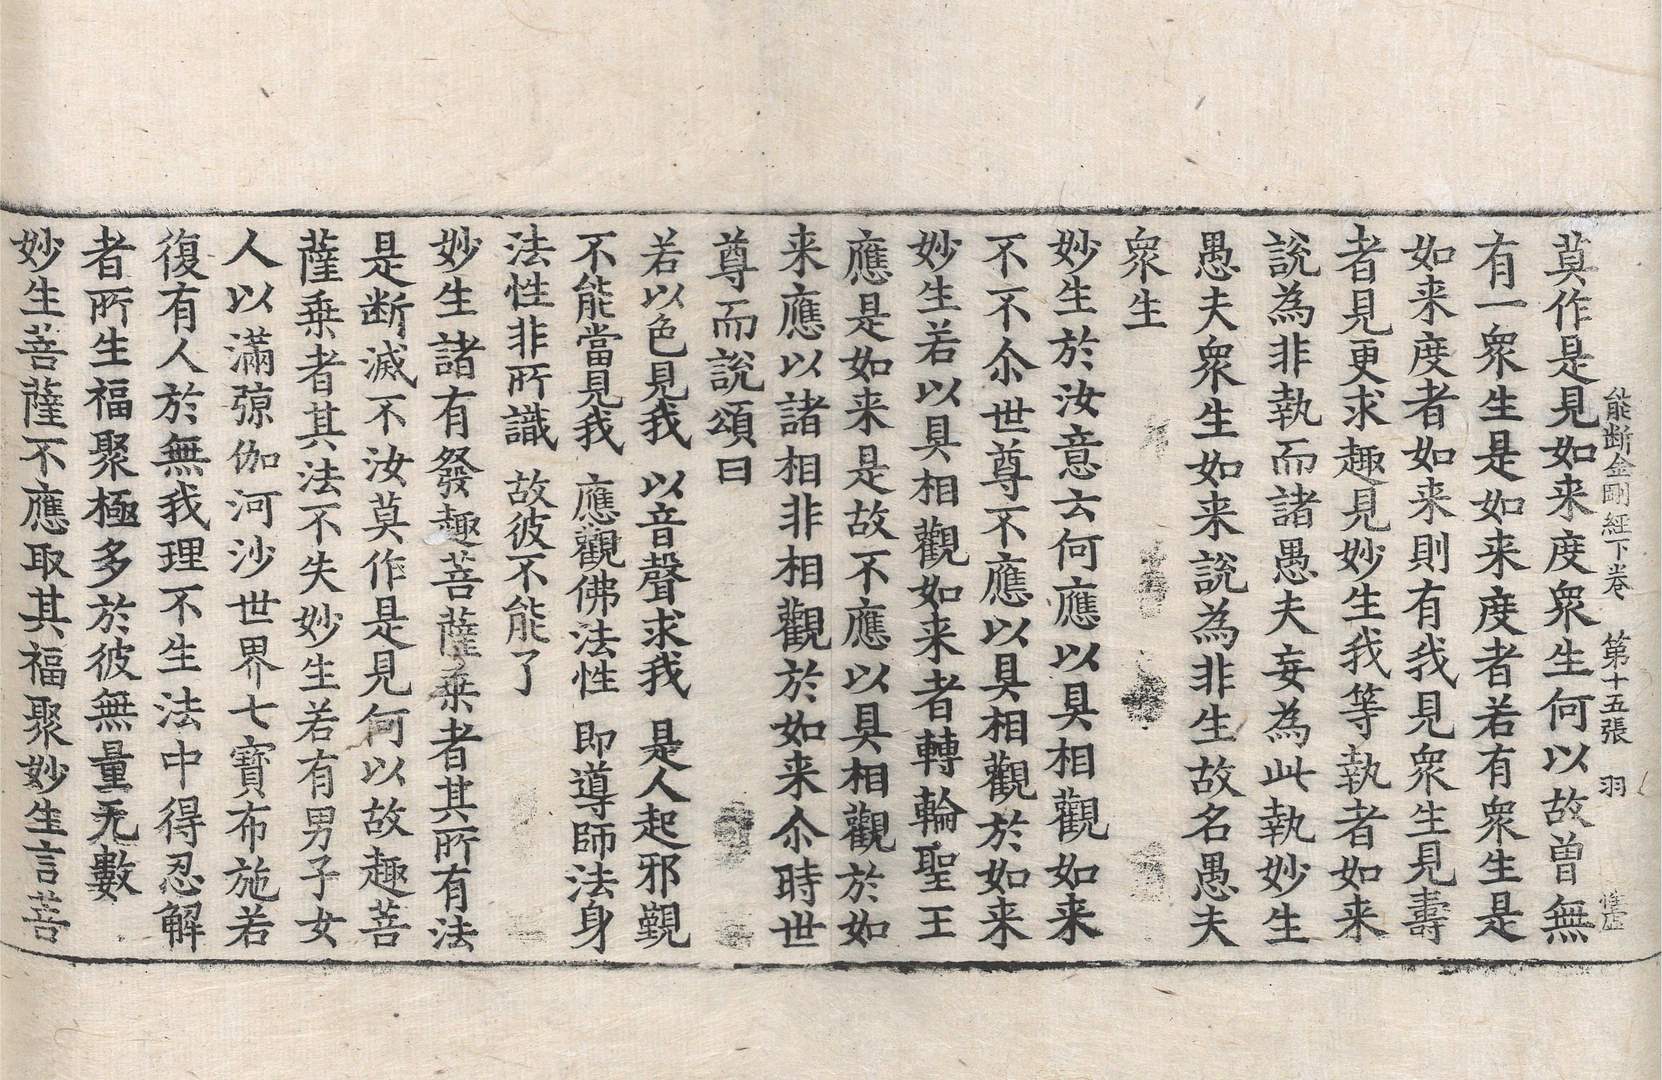 能断金剛經下卷　第十五張　羽
莫作是見如来度衆生何以故曾無
有一衆生是如来度者若有衆生是
如来度者如来則有我見衆生見壽
者見更求趣見妙生我等執者如来
說為非執而諸愚夫妄為此執妙生
愚夫衆生如来說為非生故名愚夫
衆生
妙生於汝意云何應以具相觀如来
不不尒世尊不應以具相觀於如来
妙生若以具相觀如来者轉輪聖王
應是如来是故不應以具相觀於如
来應以諸相非相觀於如来尒時世
尊而說頌曰
若以色見我　以音聲求我　是人起邪觀
不能當見我　應觀佛法性　即導師法身
法性非所識　故彼不能了
妙生諸有發趣菩薩乗者其所有法
是断滅不汝莫作是見何以故趣菩
薩乗者其法不失妙生若有男子女
人以滿殑伽河沙世界七寶布施若
復有人於無我理不生法中得忍解
者所生福聚極多於彼無量无數
妙生菩薩不應取其福聚妙生言菩